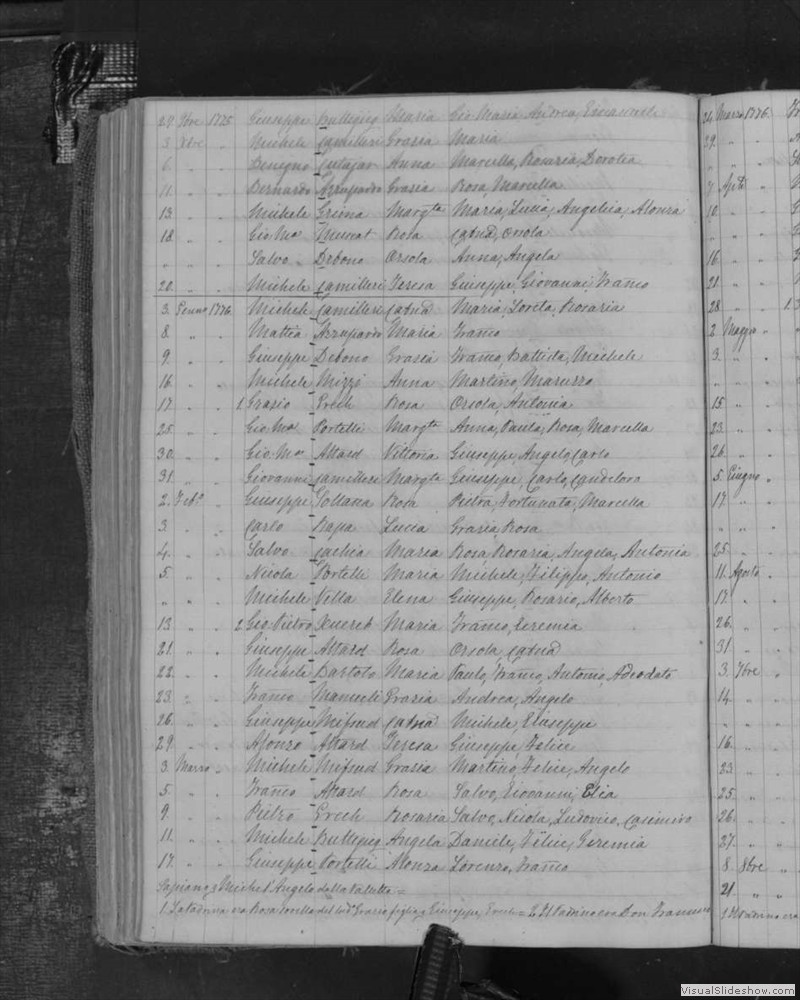 27. 9bre 1775 Giuseppe Buttigieg Maria Gio Maria Andrea,
3. Xbre " Michele Camilleri Grazia Maria
6. " " Benegno Cutajar Anna Marcella, Rosaria, Dorotea
11. " " Bernardo Azzupardo Grazia Rosa, Marcella
13 " " Michele Grima Margta Maria, Lucia, Angelica, Alonza
18. " " Gio: Ma Muscat Rosa Catna, Orsola
" " " Salvo Debono Orsola Anna, Angela
20. " " Michele Camilleri Teresa Giuseppe, Giovanni, Franco
3. Genno 1776. Michele Camilleri Catna Maria, Loreta, Rosaria
8. " " Mattea Azzupardo Maria Franco
9. " " Giuseppe Debono Grazia Franco, Battista, Michele
16. " " Michele Mizzi Anna Martino, Maruzzo
17 " " 1. Grazio Grech Rosa Orsola, Antonia
25. " " Gio: Ma Portelli Margta Anna, Paula, Rosa, Marcella
30. " " Gio: Ma Attard Vittoria Giuseppe, Angelo, Carlo
31. " " Giovanni Camilleri Margta Giuseppe, Carlo, Candeloro
2. Febo " Giuseppe Rosa Pietra, Fortunata, Marcella
3. " " Carlo Rapa Lucia Grazia, Rosa
4. " " Salvo Cachia Maria Rosa, Rosaria, Angela, Antonia
5. " " Nicola Portelli Maria Michele, Filippo, Antonio
" " " Michele Vella Elena Giuseppe, Rosario, Alberto
13 " " 2 Gio: Pietro Xuereb Maria Franco, Geremia
21. " " Giuseppe Attard Rosa Orsola, Catna
22. " " Michele Bartolo Maria Paulo, Franco, Antonio, Adeodato
23. " " Franco Mamueli Grazia Andrea, Angelo
26. " " Giuseppe Mifsud Catna Michele, Giuseppe
29. " " Alonzo Attard Teresa Giuseppe, Felice
3. Marzo " Michele Mifsud Grazia Martino, Felice, Angelo
5. " " Franco Attard Rosa Salvo, Giovanni, Elia
9. " " Pietro Grech Rosaria Salvo, Nicola, Ludovico, Casimiro
11. " " Michele Buttigieg Angela Daniele, Felice, Geremia
17. " " Giuseppe Portelli Alonza Lorenzo, Franco
Michel' Angelo della Valletta =
1. La Padrina era Rosa sorella del Grazio figlia Giuseppe, Grech = 2 Il Padrino era Don
24 Marzo 1776.
29. " "
" " "
7. Aple "
10. " "
" " "
16. " "
21. " "
28. " "
2. Maggio "
3. " "
" " "
15. " "
23. " "
26. " "
5. Giugno "
17. " "
" " "
25. " "
11. Agosto "
17. " "
26. " "
31. " "
3. 7bre "
14. " "
" " "
16. " "
23. " "
25. " "
26. " "
27. " "
8. 8bre "
21. " "
1 Il Padrino era
VisualSlideshow.com